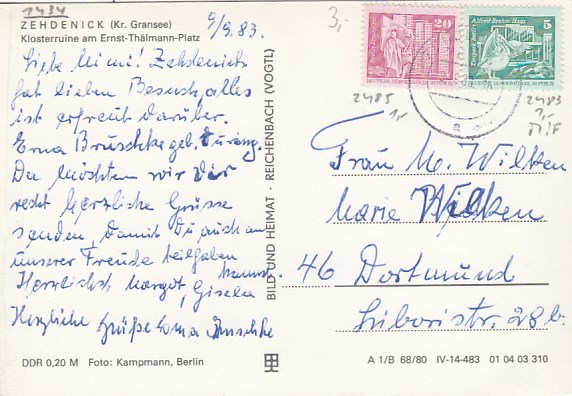 2434
ZEHDENICK (Kr. Gransee)
Klosterruine am Ernst-Thälmann-Platz
9/9.83.
Liebe Mimi! Zehdenick
hat lieben Besuch, alles
ist erfreut darüber.
Erna Bruschke geb. During.
Da möchten wir Dir
recht herzliche Grüsse
senden, damit Du auch an
unserer Freude teilhaben
kannst.
Herzlichst Margot, Gisela
Herzliche Grüße Erna Bruschke
DDR 0,20 M Foto: Kampmann, Berlin
BILD UND HEIMAT · REICHENBACH (VOGTL)
3,-
20
DDR
Alfred Brehm Haus 5
Tierpark Berlin
DDR
2485
1,-
2483
1,-
Frau M. Wilken
Marie Wilken
46 Dortmund
Liboristr. 28 b.
A 1/B 68/80 IV-14-483 01 04 03 310